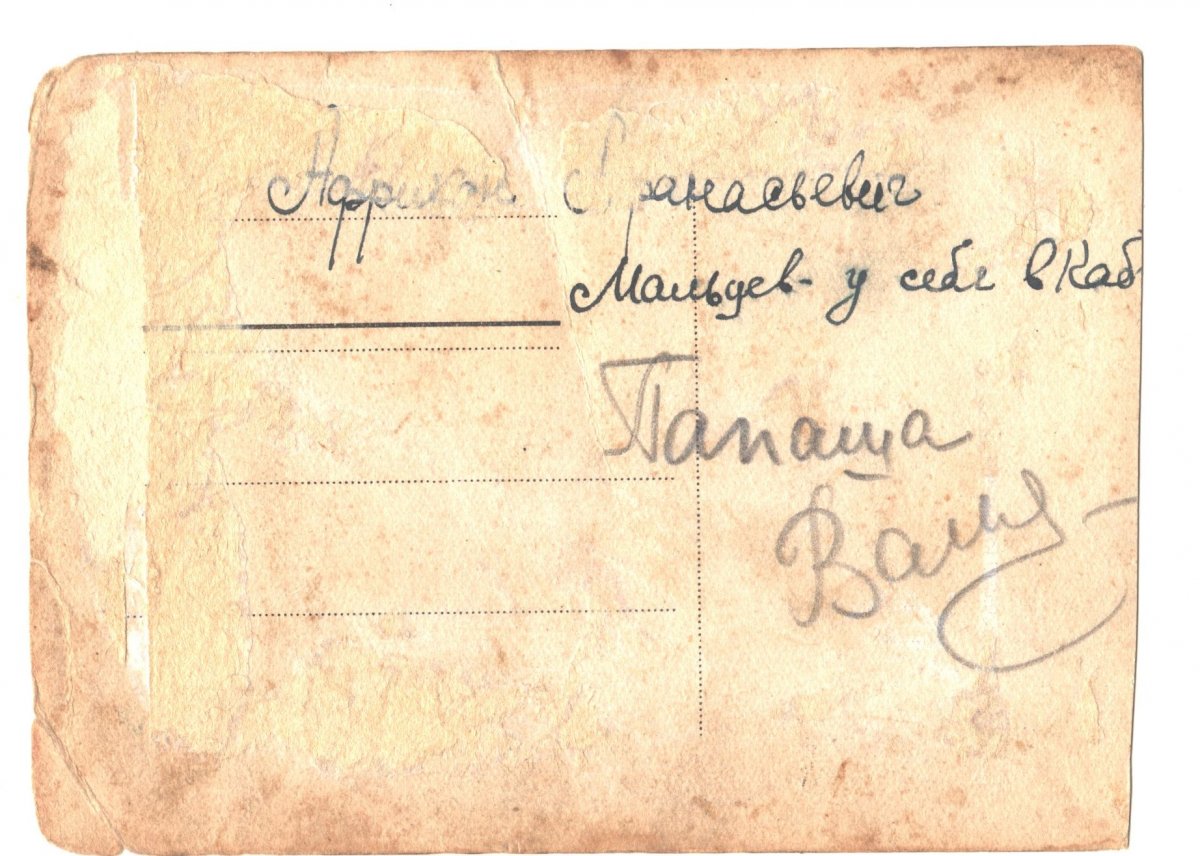 Африкан Афанасьевич
Мальцев - у себя в Каб
Папаша
Валя -